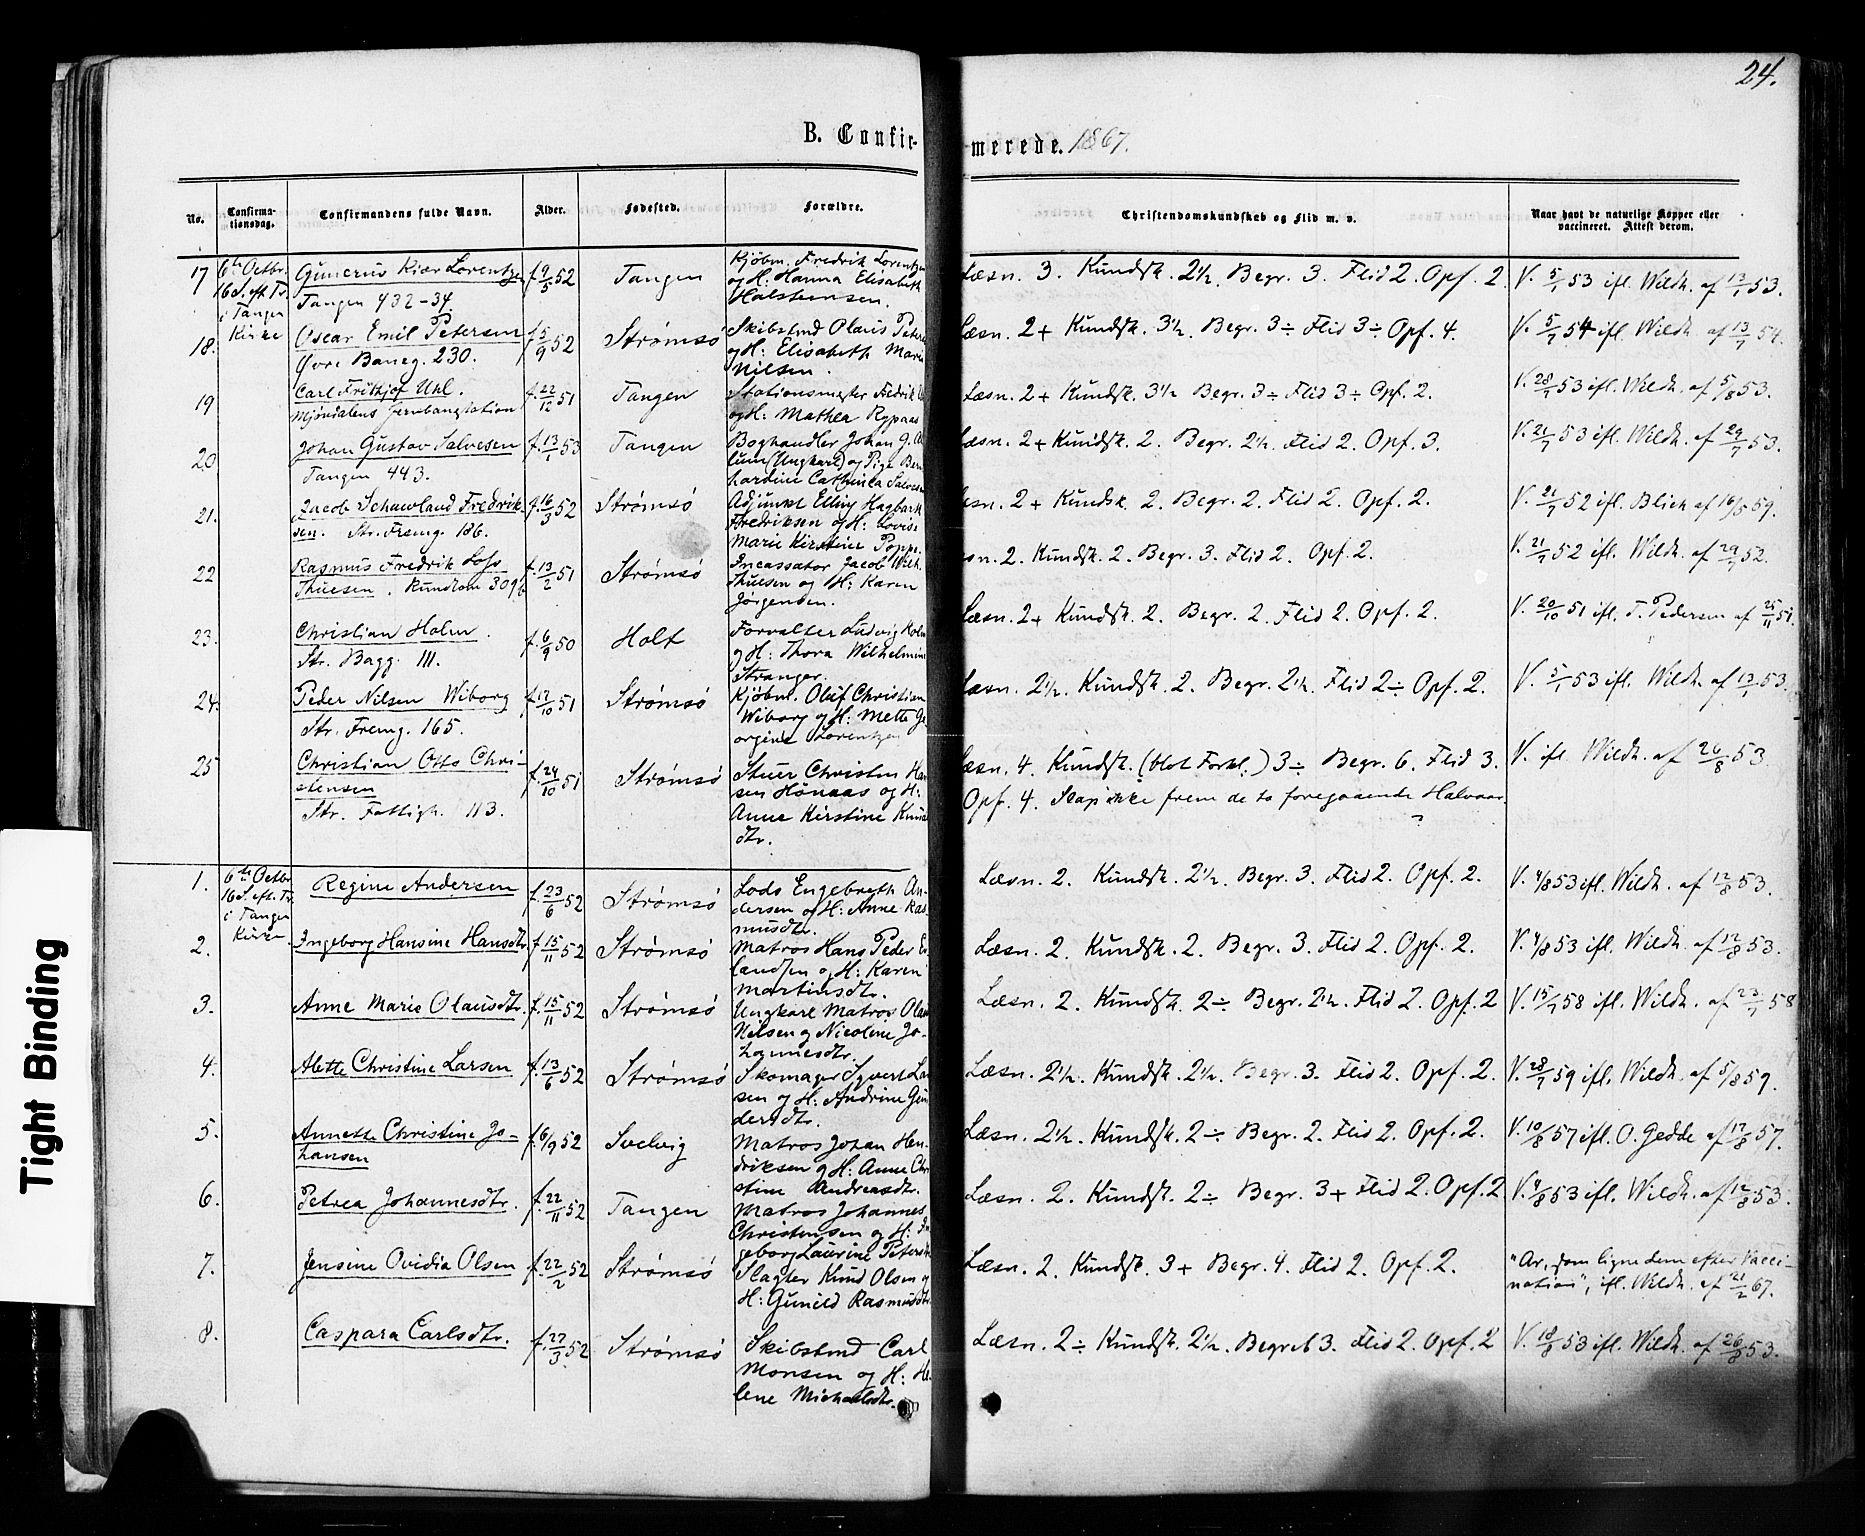 24.
B. Confir-
merede. 1867.
No.
Confirma-
tionsdag.
Confirmandens fulde Navn.
Alder.
Fødested.
Forældre.
Christendomskundskab og Flid m. v.
Naar havt de naturlige Kopper eller
vaccineret. Attest derom.
17
6te Octbr.
16 S. eft. Tr.
i Tangen
Kirke
Gunerius Kiær Lorentzen
Tangen 432-34.
f. 9/5 52
Tangen
Kjøbm. Fredrik Lorentzen
og H: Hanna Elisabeth
Halstensen.
Læsn. 3. Kundsk. 2½. Begr. 3. Flid 2. Opf. 2.
V. 5/1 53 ifl. Wildh. af 13/1 53.
18.
Oscar Emil Petersen
Øvre Baneg. 230.
f. 5/9 52
Strømsø
Skibstmd Olaus Peters
og H: Elisabeth Marie
Nilsen.
Læsn. 2+ Kundsk. 3½. Begr. 3÷ Flid 3÷ Opf. 4.
V. 5/7 54 ifl. Wildh. af 13/7 54.
19
Carl Frithjof Uhl.
Mjøndalens Jernbanstation
f. 22/12 51
Tangen
Stationsmester Fredrik U
og H: Mathea Rypaas
Læsn. 2+ Kundsk. 3½ Begr. 3÷ Flid 3÷ Opf. 2.
V. 28/7 53 ifl. Wildh. af 5/8 53.
20
Johan Gustav Salvesen
Tangen 443.
f. 13/1 53
Tangen
Boghandler Johan G.
lum (Ungkarl) og Pige Ber
hardine Cathinka Salvesen
Læsn. 2+ Kundsk. 2. Begr. 2½. Flid 2. Opf. 3.
V. 21/7 53 ifl. Wildh. af 29/7 53.
21.
Jacob Schauland Fredrik-
sen. Str. Fremg. 186.
f. 16/3 52
Strømsø
Adjunkt Elling Hagbarth
Fredriksen og H: Lovise
Marie Kirstine Poppe.
æsn. 2+ Kundsk. 2. Begr. 2. Flid 2. Opf. 2.
V. 21/7 52 ifl. Blich af 16/5 59.
22
Rasmus Fredrik Loss
Thuesen. Rundtom 309b
f. 13/2 51
Strømsø
Incassator Jacob Wilh.
Thuesen og H: Karen
Jørgensen.
sn. 2. Kundsk. 2. Begr. 3. Flid 2. Opf. 2.
V. 21/7 52 ifl. Wildh. af 29/7 52.
23.
Christian Holm.
Str. Bagg. 111.
f. 6/9 50
Holt
Forvalter Ludvig Holm
og H: Thora Wilhelmine
Stranger.
Læsn. 2+ Kundsk. 2. Begr. 2. Flid 2. Opf. 2.
V. 20/10 51 ifl. T. Pedersen af 25/11 51.
24.
Peder Nilsen Wiborg
Str. Fremg. 165.
f. 17/10 51
Strømsø
Kjøbm. Oluf Christian
Wiborg og H: Mette Ge-
orgine Lorentzen
Læsn. 2½. Kundsk. 2. Begr. 2½. Flid 2÷ Opf. 2.
V. 5/1 53 ifl. Wildh. af 13/1 53.
25
Christian Otto Chri-
stensen
Str. Fattigh. 113.
f. 24/10 51
Strømsø
Stuer Christen Han
sen Hønaas og H:
Anne Kirstine Knuds
dtr.
Læsn. 4. Kundsk. (blot Forkl.) 3÷ Begr. 6. Flid 3.
Opf. 4. Slap ikke frem de to foregaaende Halvaar.
V. ifl. Wildh. af 26/8 53.
1.
6te Octbr
16 S. eft. Tr.
i Tangen
Kirke.
Regine Andersen
f. 23/6 52
Strømsø
Lods Engebreth An-
dersen og H: Anne Ras
musdtr.
Læsn. 2. Kundsk. 2½. Begr. 3. Flid 2. Opf. 2.
V. 4/8 53 ifl. Wildh. af 12/8 53.
2.
Ingeborg Hansine Hansdtr.
f. 15/11 52
Strømsø
Matros Hans Peder Er
landsen og H: Karen
Martinsdtr.
Læsn. 2. Kundsk. 2. Begr. 3. Flid 2. Opf. 2.
V. 4/8 53 ifl. Wildh. af 12/8 53.
3.
Anne Marie Olausdtr.
f. 15/11 52
Strømsø
Ungkarl Matros Olaus
Nilsen og Nicoline Jo-
hannesdtr.
Læsn. 2. Kundsk. 2÷ Begr. 2½. Flid 2. Opf. 2
V. 15/7 58 ifl. Wildh. af 23/7 58
4.
Alette Christine Larsen
f. 13/6 52
Strømsø
Skomager Syvert Lar
sen og H: Andrine Gun
dersdtr.
Læsn. 2½. Kundsk. 2½. Begr. 3. Flid 2. Opf. 2.
V. 28/7 59 ifl. Wildh. af 5/8 59.
5.
Annette Christine Jo-
hansen
f. 6/9 52
Svelvig
Matros Johan Hen-
driksen og H: Anne Chri
stine Andreasdtr.
Læsn. 2½. Kundsk. 2÷ Begr. 2. Flid 2. Opf. 2.
V. 10/8 57 ifl. O. Gedde af 17/8 57.
6.
Petrea Johannesdtr.
f. 22/11 52
Tangen
Matros Johannes
Christensen og H: In
geborg Laurine Petersdtr
Læsn. 2. Kundsk. 2÷ Begr. 3+ Flid 2. Opf. 2
V. 4/8 53 ifl. Wildh. af 12/8 53.
7.
Jensine Ovidia Olsen
f. 22/2 52
Strømsø
Slagter Knud Olsen og
H: Gunild Rasmusdtr.
Læsn. 2. Kundsk. 3+ Begr. 4. Flid 2. Opf. 2.
"Ar, som ligne dem efter Vacci-
nation", ifl. Wildh. af 21/2 67.
8.
Caspara Carlsdtr.
f. 27/3 52
Strømsø
Skibstmd Carl
Monsen og H: He
lene Michaelsdtr.
Læsn. 2÷ Kundsk. 2½. Begreb 3. Flid 2. Opf. 2
V. 18/8 53 ifl. Wildh. af 26/8 53.
Tight Binding